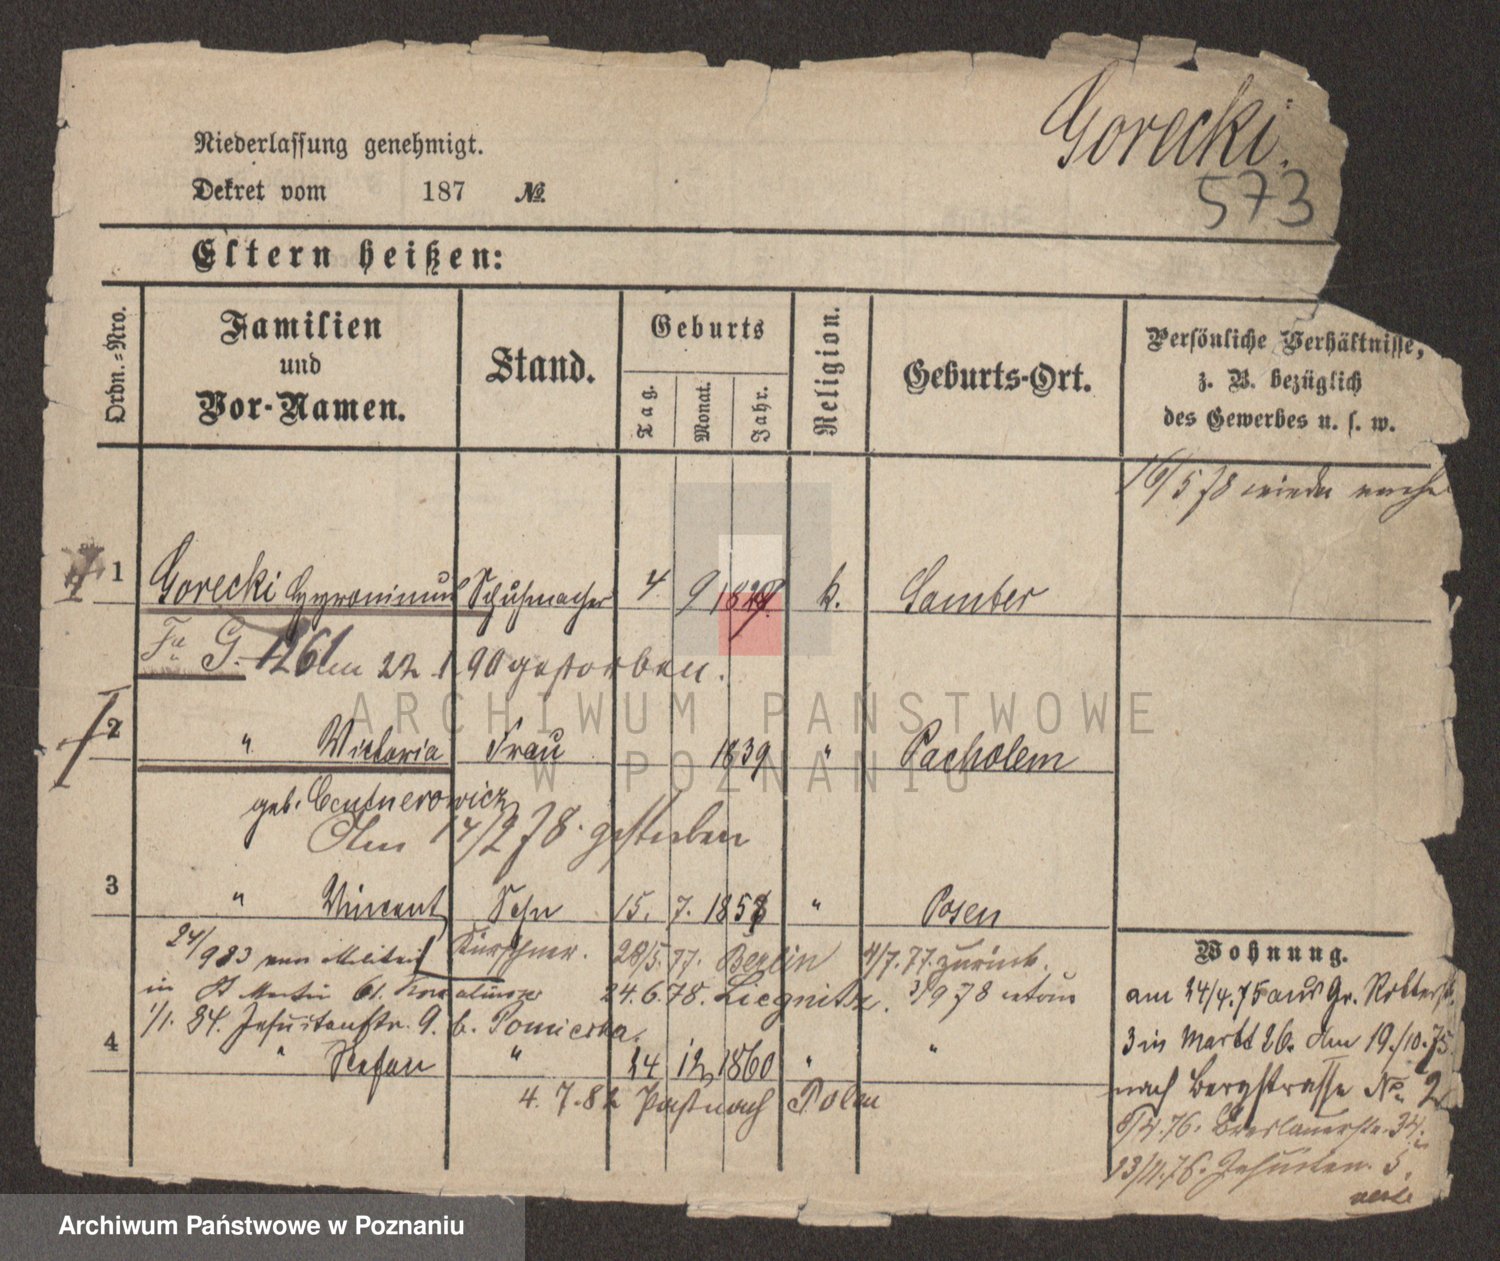 Gorecki.
573
Niederlassung genehmigt.
Dekret vom 187 №
Eltern heißen:
Ordn.-Nro.
Familien
und
Vor-Namen.
Stand.
Geburts
Tag.
Monat.
Jahr.
Religion.
Geburts-Ort.
Persönliche Verhältnisse,
z. B. bezüglich
des Gewerbes u. s. w.
16/5 78 wieder
1 Gorecki Hyronimus Schuhmacher 4 9 k. Samter
Fa G. 1261 Am 22 1 90 gestorben.
2 " Victoria Frau 1839 " Pacholem
geb. Centnerowicz
Am 14/2 78. gestorben
3 " Vincent Sohn 15. 7. 1858 " Posen
24/9 83 vom Militair Kürschner. 28/5. 77. Berlin 4/7. 77. zurück.
in St Martin 61. 24. 6. 78. Liegnitz. 3/9 78 retour
1/1. 84. Jesuitenstr. 9. b. Pomierska.
4 " Stefan " 24 12 1860 " "
4. 7. 82 Paß nach Polen
Wohnung.
am 24/4. 75 aus Gr. Ritterstr.
3 in Markt 26. Am 19./10. 75
nach Bergstrasse No. 2
76. Breslauerstr. 34.
13/11. 76. Jesuiten. 5.
ARCHIWUM PAŃSTWOWE
W POZNANIU
Archiwum Państwowe w Poznaniu